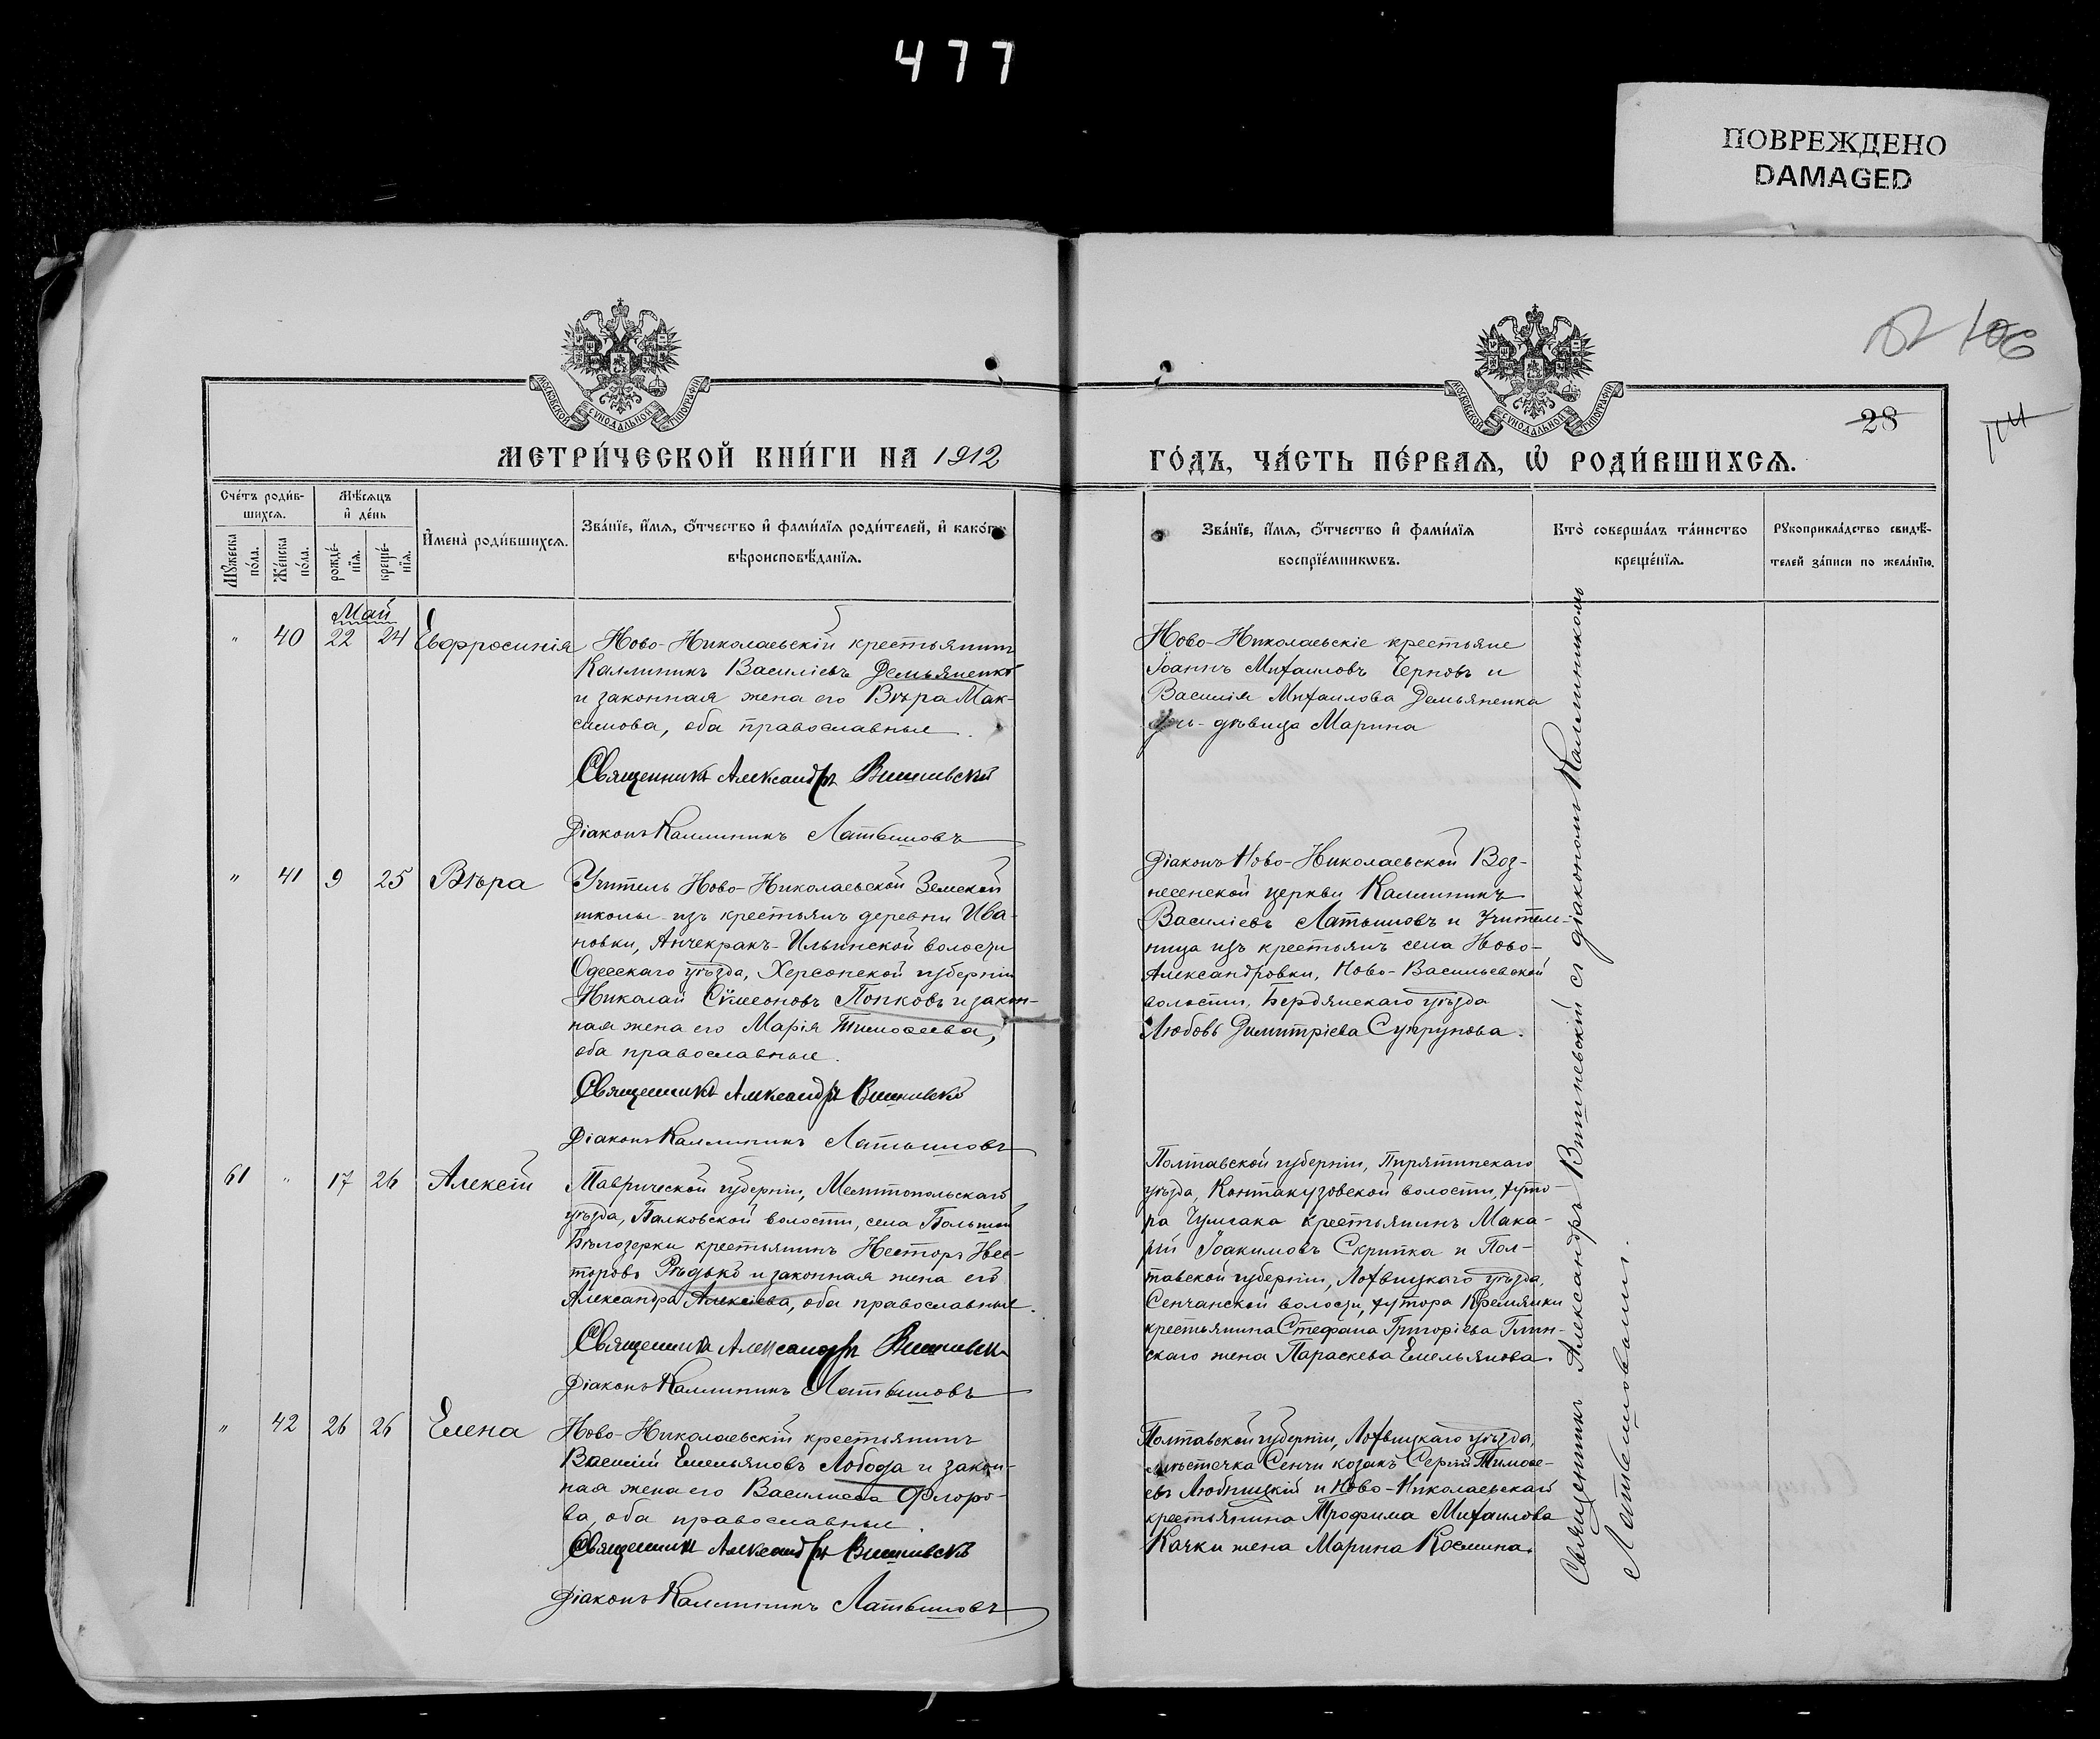 477
ПОВРЕЖДЕНО
DAMAGED
106
28
МОСКОВСКОЙ СѴНОДАЛЬНОЙ ТИПОГРАФІИ
МОСКОВСКОЙ СѴНОДАЛЬНОЙ ТИПОГРАФІИ
МЕТРИ́ЧЕСКОЙ КНИ́ГИ НА 1912
ГО́ДЪ, ЧА́СТЬ ПЕ́РВАЯ, Ѡ҆ РОДИ́ВШИХСЯ.
Сче́тъ роди́в-
шихся.
Мѣ́сяцъ
и҆ де́нь
Мꙋ́жеска
по́ла.
Же́нска
по́ла.
рожде́-
нїя.
креще́-
нїя.
И҆мена̀ роди́вшихся.
Зва́нїе, и҆́мя, ѻ҆́тчество и҆ фамилїя роди́телей, и҆ како́гѡ
вѣроисповѣ́данїя.
Зва́нїе, и҆́мя, ѻ҆́тчество и҆ фами́лїя
воспрїе́мникѡвъ.
Кто̀ соверша́лъ та́инство
креще́нїя.
Рꙋкоприкла́дство свидѣ́-
телей за́писи по жела́нїю.
Май
" 40 22 24 Евфросинія
Ново-Николаевскій крестьянинъ
Каллиникъ Василіевъ Демьяненко
и законная жена его Вѣра Мак-
симова, оба православные.
Священникъ Александръ Вишневскій
Діаконъ Каллиникъ Латышовъ
Ново-Николаевскіе крестьяне
Іоаннъ Михаиловъ Черновъ и
Василія Михаилова Демьяненка
дочь-дѣвица Марина
" 41 9 25 Вѣра
Учитель Ново-Николаевской Земской
школы изъ крестьянъ деревни Ива-
новки, Анчекракъ-Ильинской волости
Одесскаго уѣзда, Херсонской губерніи
Николай Сѵмеоновъ Попковъ и закон-
ная жена его Марія Тимоѳеева,
оба православные.
Священникъ Александръ Вишневскій
Діаконъ Каллиникъ Латышовъ
Діаконъ Ново-Николаевской Воз-
несенской церкви Каллиникъ
Василіевъ Латышовъ и Учитель-
ница изъ крестьянъ села Ново-
Александровки, Ново-Васильевской
волости, Бердянскаго уѣзда
Любовь Димитріева Супрунова.
61 " 17 26 Алексій
Таврической губерніи, Мелитопольскаго
уѣзда, Балковской волости, села Большой
Бѣлозерки крестьянинъ Несторъ Нес-
торовъ Рѣдько и законная жена его
Александра Алексіева, оба православные.
Священникъ Александръ Вишневскій
Діаконъ Каллиникъ Латышовъ
Полтавской губерніи, Пирятинскаго
уѣзда, Кантакузовской волости, хуто-
ра Чумака крестьянинъ Мака-
рій Іоакимовъ Скрипка и Пол-
тавской губерніи, Лохвицкаго уѣзда,
Сенчанской волости, хутора Кремянки
крестьянина Стефана Григоріева Глин-
скаго жена Параскева Емельянова.
" 42 26 26 Елена
Ново-Николаевскій крестьянинъ
Василій Емельяновъ Лобода и закон-
ная жена его Василисса Флоро-
ва, оба православные.
Священникъ Александръ Вишневскій
Діаконъ Каллиникъ Латышовъ
Полтавской губерніи, Лохвицкаго уѣзда,
мѣстечка Сенчи козакъ Сергій Тимоѳе-
евъ Любицкій и Ново-Николаевскаго
крестьянина Трофима Михаилова
Качки жена Марина Космина.
Священникъ Александръ Вишневскій съ діакономъ Каллиникомъ
Латышовымъ.